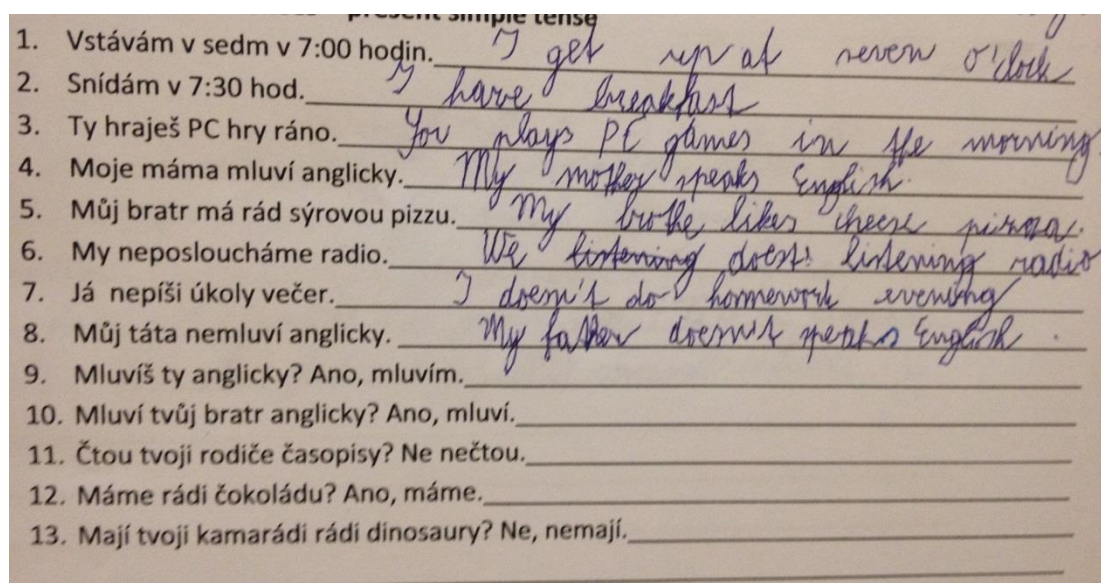 present simple tense
1. Vstávám v sedm v 7:00 hodin. I get up at seven o'clock
2. Snídám v 7:30 hod. I have breakfast
3. Ty hraješ PC hry ráno. You plays PC games in the morning.
4. Moje máma mluví anglicky. My mother speaks English.
5. Můj bratr má rád sýrovou pizzu. My brothe likes cheese pizza.
6. My neposloucháme radio. We listening listening radio
7. Já nepíši úkoly večer. I doesn't do homework evening
8. Můj táta nemluví anglicky. My father doesn't speaks English.
9. Mluvíš ty anglicky? Ano, mluvím.
10. Mluví tvůj bratr anglicky? Ano, mluví.
11. Čtou tvoji rodiče časopisy? Ne nečtou.
12. Máme rádi čokoládu? Ano, máme.
13. Mají tvoji kamarádi rádi dinosaury? Ne, nemají.